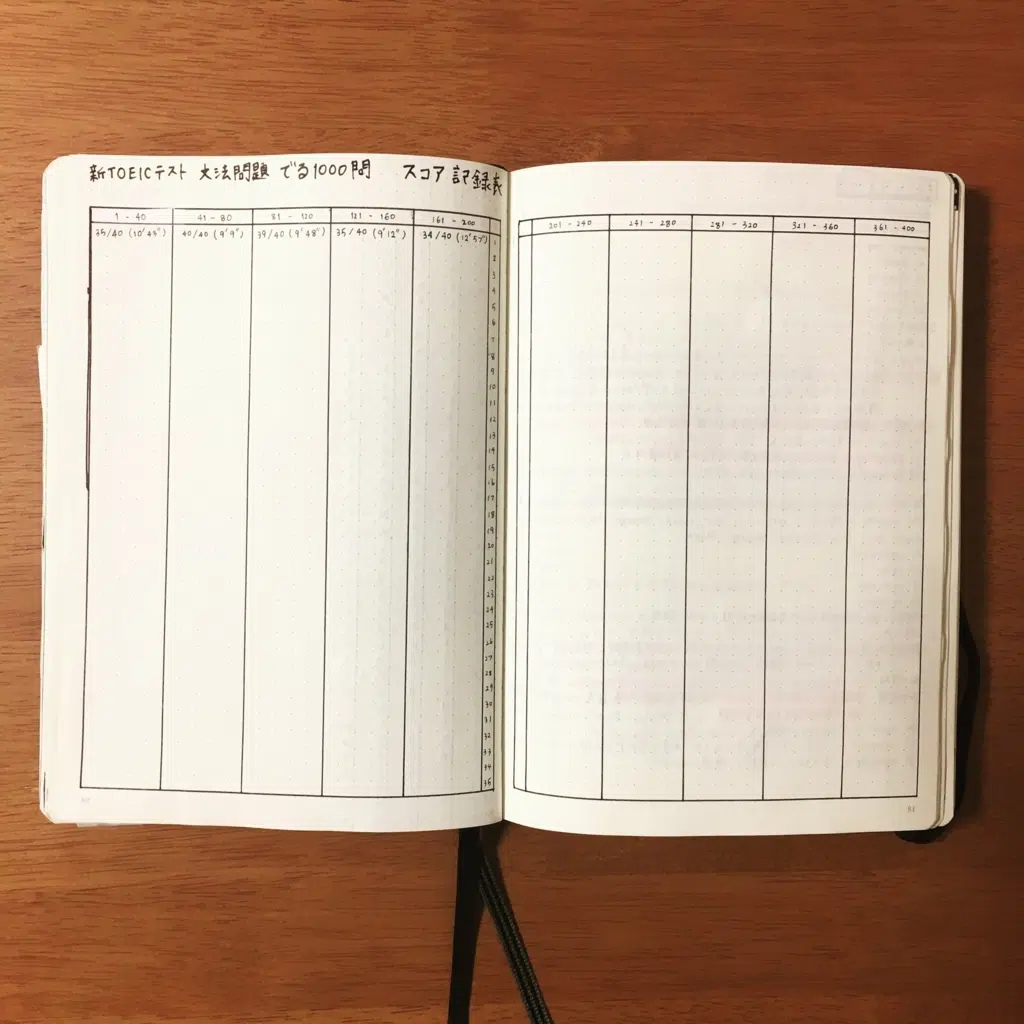 新TOEICテスト 文法問題 でる1000問 スコア記録表
1 - 40 41 - 80 81 - 120 121 - 160 161 - 200
35/40 (10'45") 40/40 (9'9") 39/40 (9'48") 35/40 (9'12") 34/40 (12'57")
1
2
3
4
5
6
7
8
9
10
11
12
13
14
15
16
17
18
19
20
21
22
23
24
25
26
27
28
29
30
31
32
33
34
35
201 - 240 241 - 280 281 - 320 321 - 360 361 - 400